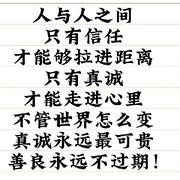 人与人之间
只有信任
才能够拉进距离
只有真诚
才能走进心里
不管世界怎么变
真诚永远最可贵
善良永远不过期!